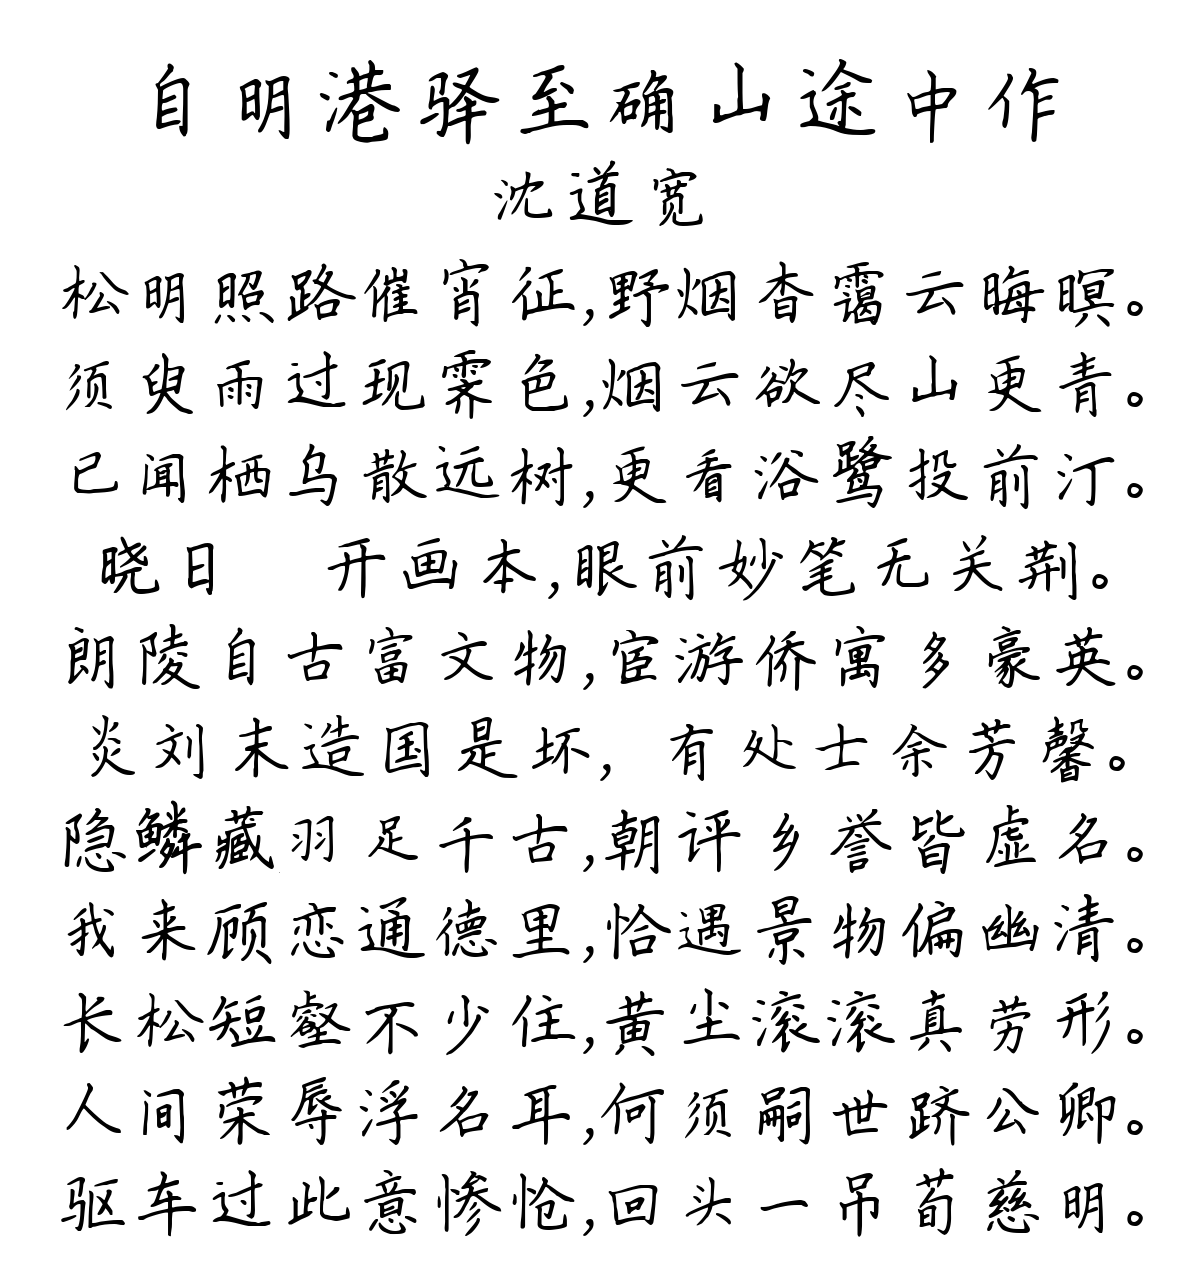 自明港驿至确山途中作
沈道宽
松明照路催宵征,野烟杳霭云晦暝。
须臾雨过现霁色,烟云欲尽山更青。
已闻栖乌散远树,更看浴鹭投前汀。
晓日 开画本,眼前妙笔无关荆。
朗陵自古富文物,宦游侨寓多豪英。
炎刘末造国是坏,有处士余芳馨。
隐鳞藏羽足千古,朝评乡誉皆虚名。
我来顾恋通德里,恰遇景物偏幽清。
长松短壑不少住,黄尘滚滚真劳形。
人间荣辱浮名耳,何须嗣世跻公卿。
驱车过此意惨怆,回头一吊荀慈明。